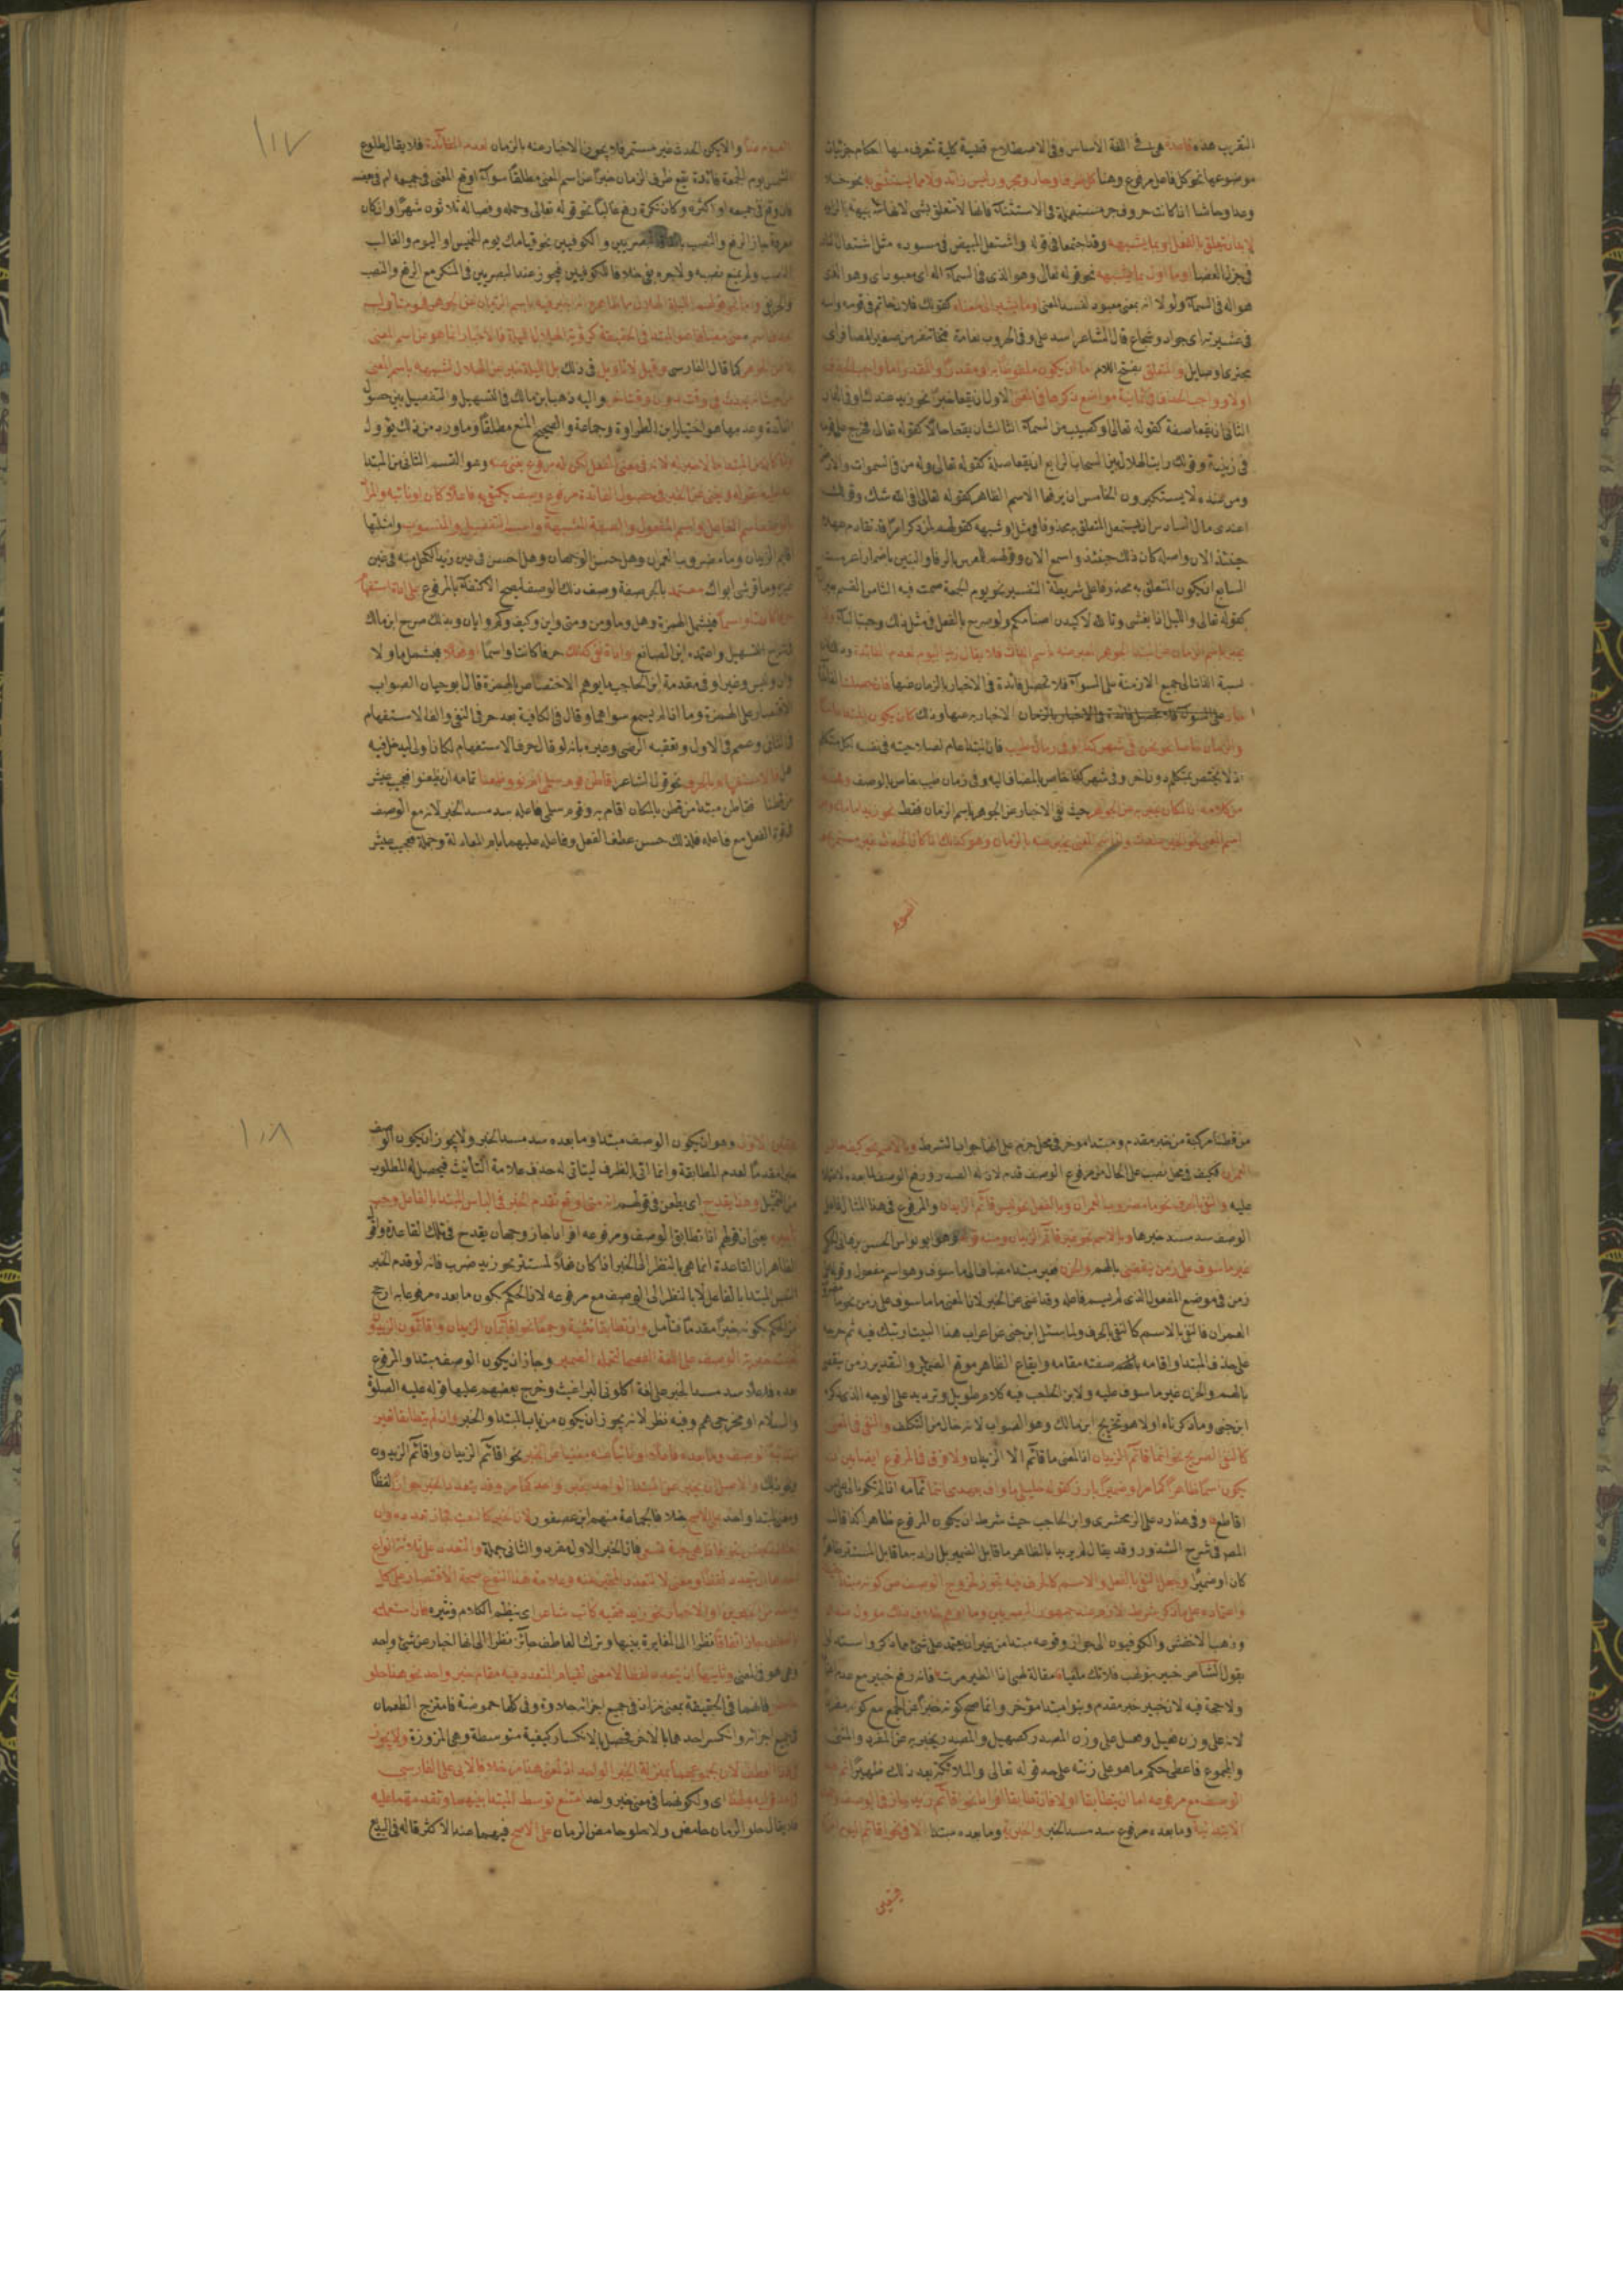 التقريب هذه قاعدة هى فى اللغة الأساس وفى الاصطلاح قضية كلية تتعرف منها احكام جزئيات
موضوعها نحو كل فاعل مرفوع وهنا كل ظرف او جار ومجرور ليس زائد ولا مما يستثنى به نحو خلا
وعدا وحاشا اذا كانت حروف جر مستعملة فى الاستثناء فانها لا تتعلق بشى
لابد ان يتعلق بالفعل او بما يشبهه وقد اجتمعا فى قوله واشتعل المبيض فى مسوده مثل اشتعال النار
فى جزل الغضا او ما اول بما يشبهه نحو قوله تعالى وهو الذى فى السماء اله اى معبود اى وهو الذى
هو اله فى السماء ولولا انه بمعنى معبود لفسد المعنى او ما يشير الى معناه كقولك فلان حاتم فى قومه
فى عشيرته اى جواد وشجاع قال الشاعر اسد على وفى الحروب نعامة
والمتعلق بفتح اللام اما ان يكون ملفوظا به او مقدرا والمقدر اما واجب الحذف
اولا وواجب الحذف فى ثمانية مواضع ذكرها فى المغنى الاول ان يقعا خبرا نحو زيد عندك او فى الدار
الثانى ان يقعا صفة كقوله تعالى او كصيب من السماء الثالث ان يقعا حالا كقوله تعالى فخرج على قومه
فى زينته وقولك رايت الهلال بين السحاب الرابع ان يقعا صلة كقوله تعالى وله من فى السموات والارض
ومن عنده لا يستكبرون الخامس ان يرفعا الاسم الظاهر كقوله تعالى افى الله شك
اعندى مال السادس ان يستعمل المتعلق محذوفا فى مثل او شبهه كقولهم لمن ذكر امرا قد تقادم عهده
حينئذ الان واصله كان ذلك حينئذ واسمع الان وقولهم للمعرس بالرفا والبنين باضمار اعرست
السابع ان يكون المتعلق به محذوفا على شريطة التفسير نحو يوم الجمعة صمت فيه الثامن القسم بغير الباء
كقوله تعالى والليل اذا يغشى وتالله لاكيدن اصنامكم ولو صرح بالفعل فى مثل ذلك وجبت الباء
يخبر باسم الزمان عن المبتدا الجوهر المخبر عنه باسم المكان فلا يقال زيد اليوم لعدم الفائدة
نسبة الذات الى جميع الازمنة على السواء فلا تحصل فائدة فى الاخبار بالزمان عنها فان حصلت الفائدة
الاخبار به عنها وذلك كان يكون المبتدا عاما
والزمان خاصا نحو نحن فى شهر كذا او فى زمان طيب فان المبتدا عام لصلاحيته فى نفسه لكل متكلم
اذ لا يختص بمتكلم دون اخر وفى شهر كذا خاص بالمضاف اليه وفى زمان طيب خاص بالوصف
من كلامه ان المكان يخبر به عن الجوهر حيث نفى الاخبار عن الجوهر باسم الزمان فقط نحو زيد امامك
اسم المعنى نحو العلم عندك وان اسم المعنى يخبر عنه بالزمان وهو كذلك ان كان الحدث غير مستمر نحو
الصوم
١١٧
الصوم غدا والا يكن الحدث غير مستمر فلا يجوز الاخبار عنه بالزمان لعدم الفائدة فلا يقال طلوع
الشمس يوم الجمعة فائدة يقع ظرف الزمان خبرا عن اسم المعنى مطلقا سواء اوقع المعنى فى جميعه ام فى بعضه
فان وقع فى جميعه او اكثره وكان نكرة رفع غالبا نحو قوله تعالى وحمله وفصاله ثلاثون شهرا وان كان
معرفة جاز الرفع والنصب باتفاق البصريين والكوفيين نحو قيامك يوم الخميس او اليوم والغالب
النصب ولم يمتنع نصبه ولا جره بفى خلافا للكوفيين فيجوز عند البصريين فى المنكر مع الرفع والنصب
والجر بفى واما نحو قولهم الليلة الهلال مما ظاهره انه اخبر فيه باسم الزمان عن الجوهر فهو متاول
بحذف اسم معنى مضاف هو المبتدا فى الحقيقة كرؤية الهلال الليلة فالاخبار انما هو عن اسم المعنى
لا عن الجوهر كما قال الفارسى وقيل لا تاويل فى ذلك بل الليلة خبر عن الهلال لشبهه باسم المعنى
من حيث انه يحدث فى وقت دون وقت اخر واليه ذهب ابن مالك فى التسهيل والتفصيل بين حصول
الفائدة وعدمها هو اختيار ابن الطراوة وجماعة والصحيح المنع مطلقا وما ورد من ذلك يؤول
وهو القسم الثانى من المبتدا
اشار اليه بقوله ويغنى عن الخبر فى حصول الفائدة مرفوع وصف يكتفى به فاعلا كان او نائبه والمراد
بالوصف اسم الفاعل واسم المفعول والصفة المشبهة واسم التفضيل والمنسوب وامثلتها
اقايم الزيدان وما مضروب العمران وهل حسن الوجهان وهل احسن فى عين زيد الكحل منه فى عين
غيره وما قرشى ابواك معتمد بالجر صفة وصف ذلك الوصف ليصح الاكتفاء بالمرفوع على اداة استفهام
حرفا كانت او اسما فيشمل الهمزة وهل وما ومن ومتى واين وكيف وكم وايان وبذلك صرح ابن مالك
فى شرح التسهيل واعتمده ابن الصايغ او اداة نفى كذلك حرفا كانت او اسما او فعلا فيشمل ما ولا
وان وليس وغير او فى مقدمة ابن الحاجب ما يوهم الاختصاص بالهمزة قال ابو حيان الصواب
الاقتصار على الهمزة وما اذ لم يسمع سواهما وقال فى الكافية بعد حرف النفى والف الاستفهام
فى الثانى وعمم فى الاول وتعقبه الرضى وغيره بانه لو قال حرف الاستفهام لكان اولى ليدخل فيه
هل فالاستفهام بالحرف نحو قول الشاعر اقاطن قوم سلمى ام نووا ظعنا تمامه ان يظعنوا فعجيب عيش
من قطنا فقاطن مبتدا من قطن بالمكان اقام به وقوم سلمى فاعله سد مسد الخبر لانه مع الوصف
الفعل مع فاعله فلذلك حسن عطف الفعل وفاعله عليهما بام المعادلة وجملة فعجيب عيش
من قطنا مركبة من خبر مقدم ومبتدا موخر فى محل جزم على انها جواب الشرط وبالاسم نحو كيف جالس
العمران فكيف فى محل نصب على الحال من مرفوع الوصف قدم لان له الصدر ورفع الوصف لما بعده
عليه والنفى بالحرف نحو ما مضروب العمران وبالفعل نحو ليس قائم الزيدان والمرفوع فى هذا المثال فاعل
الوصف سد مسد خبرها وبالاسم نحو غير قائم الزيدان ومنه قوله وهو ابو نواس الحسن بن هانى
غير ماسوف على زمن ينقضى بالهم والحزن فغير مبتدا مضاف الى ماسوف وهو اسم مفعول وقوله على
زمن فى موضع المفعول الذى لم يسم فاعله وقد اغنى عن الخبر لان المعنى ما ماسوف على زمن نحو ما مضروب
العمران فالنفى بالاسم كالنفى بالحرف ولما سئل ابن جنى عن اعراب هذا البيت ارتبك فيه ثم خرجه
على حذف المبتدا واقامه صفته مقامه وايقاع الظاهر موقع الضمير والتقدير زمن ينقضى
بالهم والحزن غير ماسوف عليه ولابن الحاجب فيه كلام طويل وترديد على الوجه الذى ذكره
ابن جنى وما ذكرناه اولا هو تخريج ابن مالك وهو الصواب لانه خال من التكلف والنفى فى المعنى
كالنفى الصريح نحو انما قائم الزيدان اذ المعنى ما قائم الا الزيدان ولا فرق فى المرفوع ايضا بين ان
يكون اسما ظاهرا كما مر او ضميرا بارزا كقوله خليلى ما واف بعهدى انتما تمامه اذا لم تكونا لى على من
اقاطع وفى هذا رد على الزمخشرى وابن الحاجب حيث شرط ان يكون المرفوع ظاهرا كذا قاله
المص فى شرح الشذور وقد يقال لم يريدا بالظاهر ما قابل الضمير بل اراد به ما قابل المستتر ظاهرا
كان او ضميرا
واعتماده على ما ذكر شرط لازم عند جمهور البصريين وما اوهم خلاف ذلك مؤول
وذهب الاخفش والكوفيون الى جواز وقوعه مبتدا من غير ان يعتمد على شئ مما ذكر واستدلوا
بقول الشاعر خبير بنو لهب فلا تك ملغيا مقالة لهبى اذا الطير مرت فانه رفع خبير مع عدم
ولا حجة فيه لان خبير خبر مقدم وبنو لهب مبتدا مؤخر وانما صح كونه خبرا عن الجمع مع كونه مفردا
لانه على وزن فعيل وفعيل على وزن المصدر كصهيل والمصدر يخبر به عن المفرد والمثنى
والمجموع فاعطى حكم ما هو على زنته على حد قوله تعالى والملائكة بعد ذلك ظهير
الوصف مع مرفوعه اما ان يتطابقا او لا فان تطابقا افرادا نحو اقائم زيد جاز فى الوصف
الابتدائية وما بعده مرفوع سد مسد الخبر والخبرية وما بعده مبتدا الا فى نحو اقائم اليوم
فيتعين
١١٨
فيتعين الاول وهو ان يكون الوصف مبتدا وما بعده سد مسد الخبر ولا يجوز ان يكون الوصف
خبرا مقدما لعدم المطابقة وانما اتى بالظرف ليتاتى له حذف علامة التأنيث فيحصل له المطلوب
من التمثيل وهذا يقدح اى يطعن فى قولهم انه متى وقع تقدم الخبر فى الباس المبتدا بالفاعل وجب
تاخيره يعنى ان قولهم اذا تطابق الوصف ومرفوعه افرادا جاز وجهان يقدح فى تلك القاعدة
الظاهر ان القاعدة انما هى بالنظر الى الخبر اذا كان فعلا لمستتر نحو زيد ضرب فانه لو قدم الخبر
التبس المبتدا بالفاعل لا بالنظر الى الوصف مع مرفوعه لان الحكم بكون ما بعده مرفوعا به ارجح
من الحكم بكونه خبرا مقدما فتأمل وان تطابقا تثنية وجمعا نحو اقائمان الزيدان واقائمون الزيدون
تعينت خبرية الوصف على اللغة الفصحى لتحمله الضمير وجاز ان يكون الوصف مبتدا والمرفوع
بعده فاعلا سد مسد الخبر على لغة اكلونى البراغيث وخرج بعضهم عليها قوله عليه الصلوة
والسلام او مخرجى هم وفيه نظر لانه يجوز ان يكون من باب المبتدا والخبر وان لم يتطابقا تعين
ابتدائية الوصف وما بعده فاعلا او نائبا عنه مغنيا عن الخبر نحو اقائم الزيدان واقائم الزيدون
والاصل ان يخبر عن المبتدا الواحد بخبر واحد كما مر وقد يتعدد الخبر جوازا لفظا
ومعنى لمبتدا واحد على الاصح خلافا لجماعة منهم ابن عصفور لان الخبر كالنعت فجاز تعدده وان
اختلف الجنس نحو فاذا هى حية تسعى فان الخبر الاول مفرد والثانى جملة والتعدد على ثلاثة انواع
احدها ان يتعدد لفظا ومعنى لا لتعدد المخبر عنه وعلامة هذا النوع صحة الاقتصار على كل
واحد من الخبرين او الاخبار نحو زيد فقيه كاتب شاعر اى ينظم الكلام ونثيره فان استعمل
بالعطف جاز اتفاقا نظرا الى المغايرة بينها وترك العاطف جائز نظرا الى انها اخبار عن شئ واحد
وهى هو فى المعنى وثانيها ان يتعدد لفظا لا معنى لقيام المتعدد فيه مقام خبر واحد نحو هذا حلو
حامض فانهما فى الحقيقة بمعنى مز اذ فى جميع اجزائه حلاوة وفى كلها حموضة فامتزج الطعمان
فى جميع اجزائه وانكسر احدهما بالاخر فحصل بالانكسار كيفية متوسطة وهى المزوزة ولا يجوز
فى هذا العطف لان مجموعهما بمنزلة الخبر الواحد اذ المعنى هذا مز خلافا لابى على الفارسى
اى ولكونهما فى معنى خبر واحد امتنع توسط المبتدا بينهما وتقدمهما عليه
فلا يقال حلو الرمان حامض ولا حلو حامض الرمان على الاصح فيهما عند الاكثر قاله فى البديع